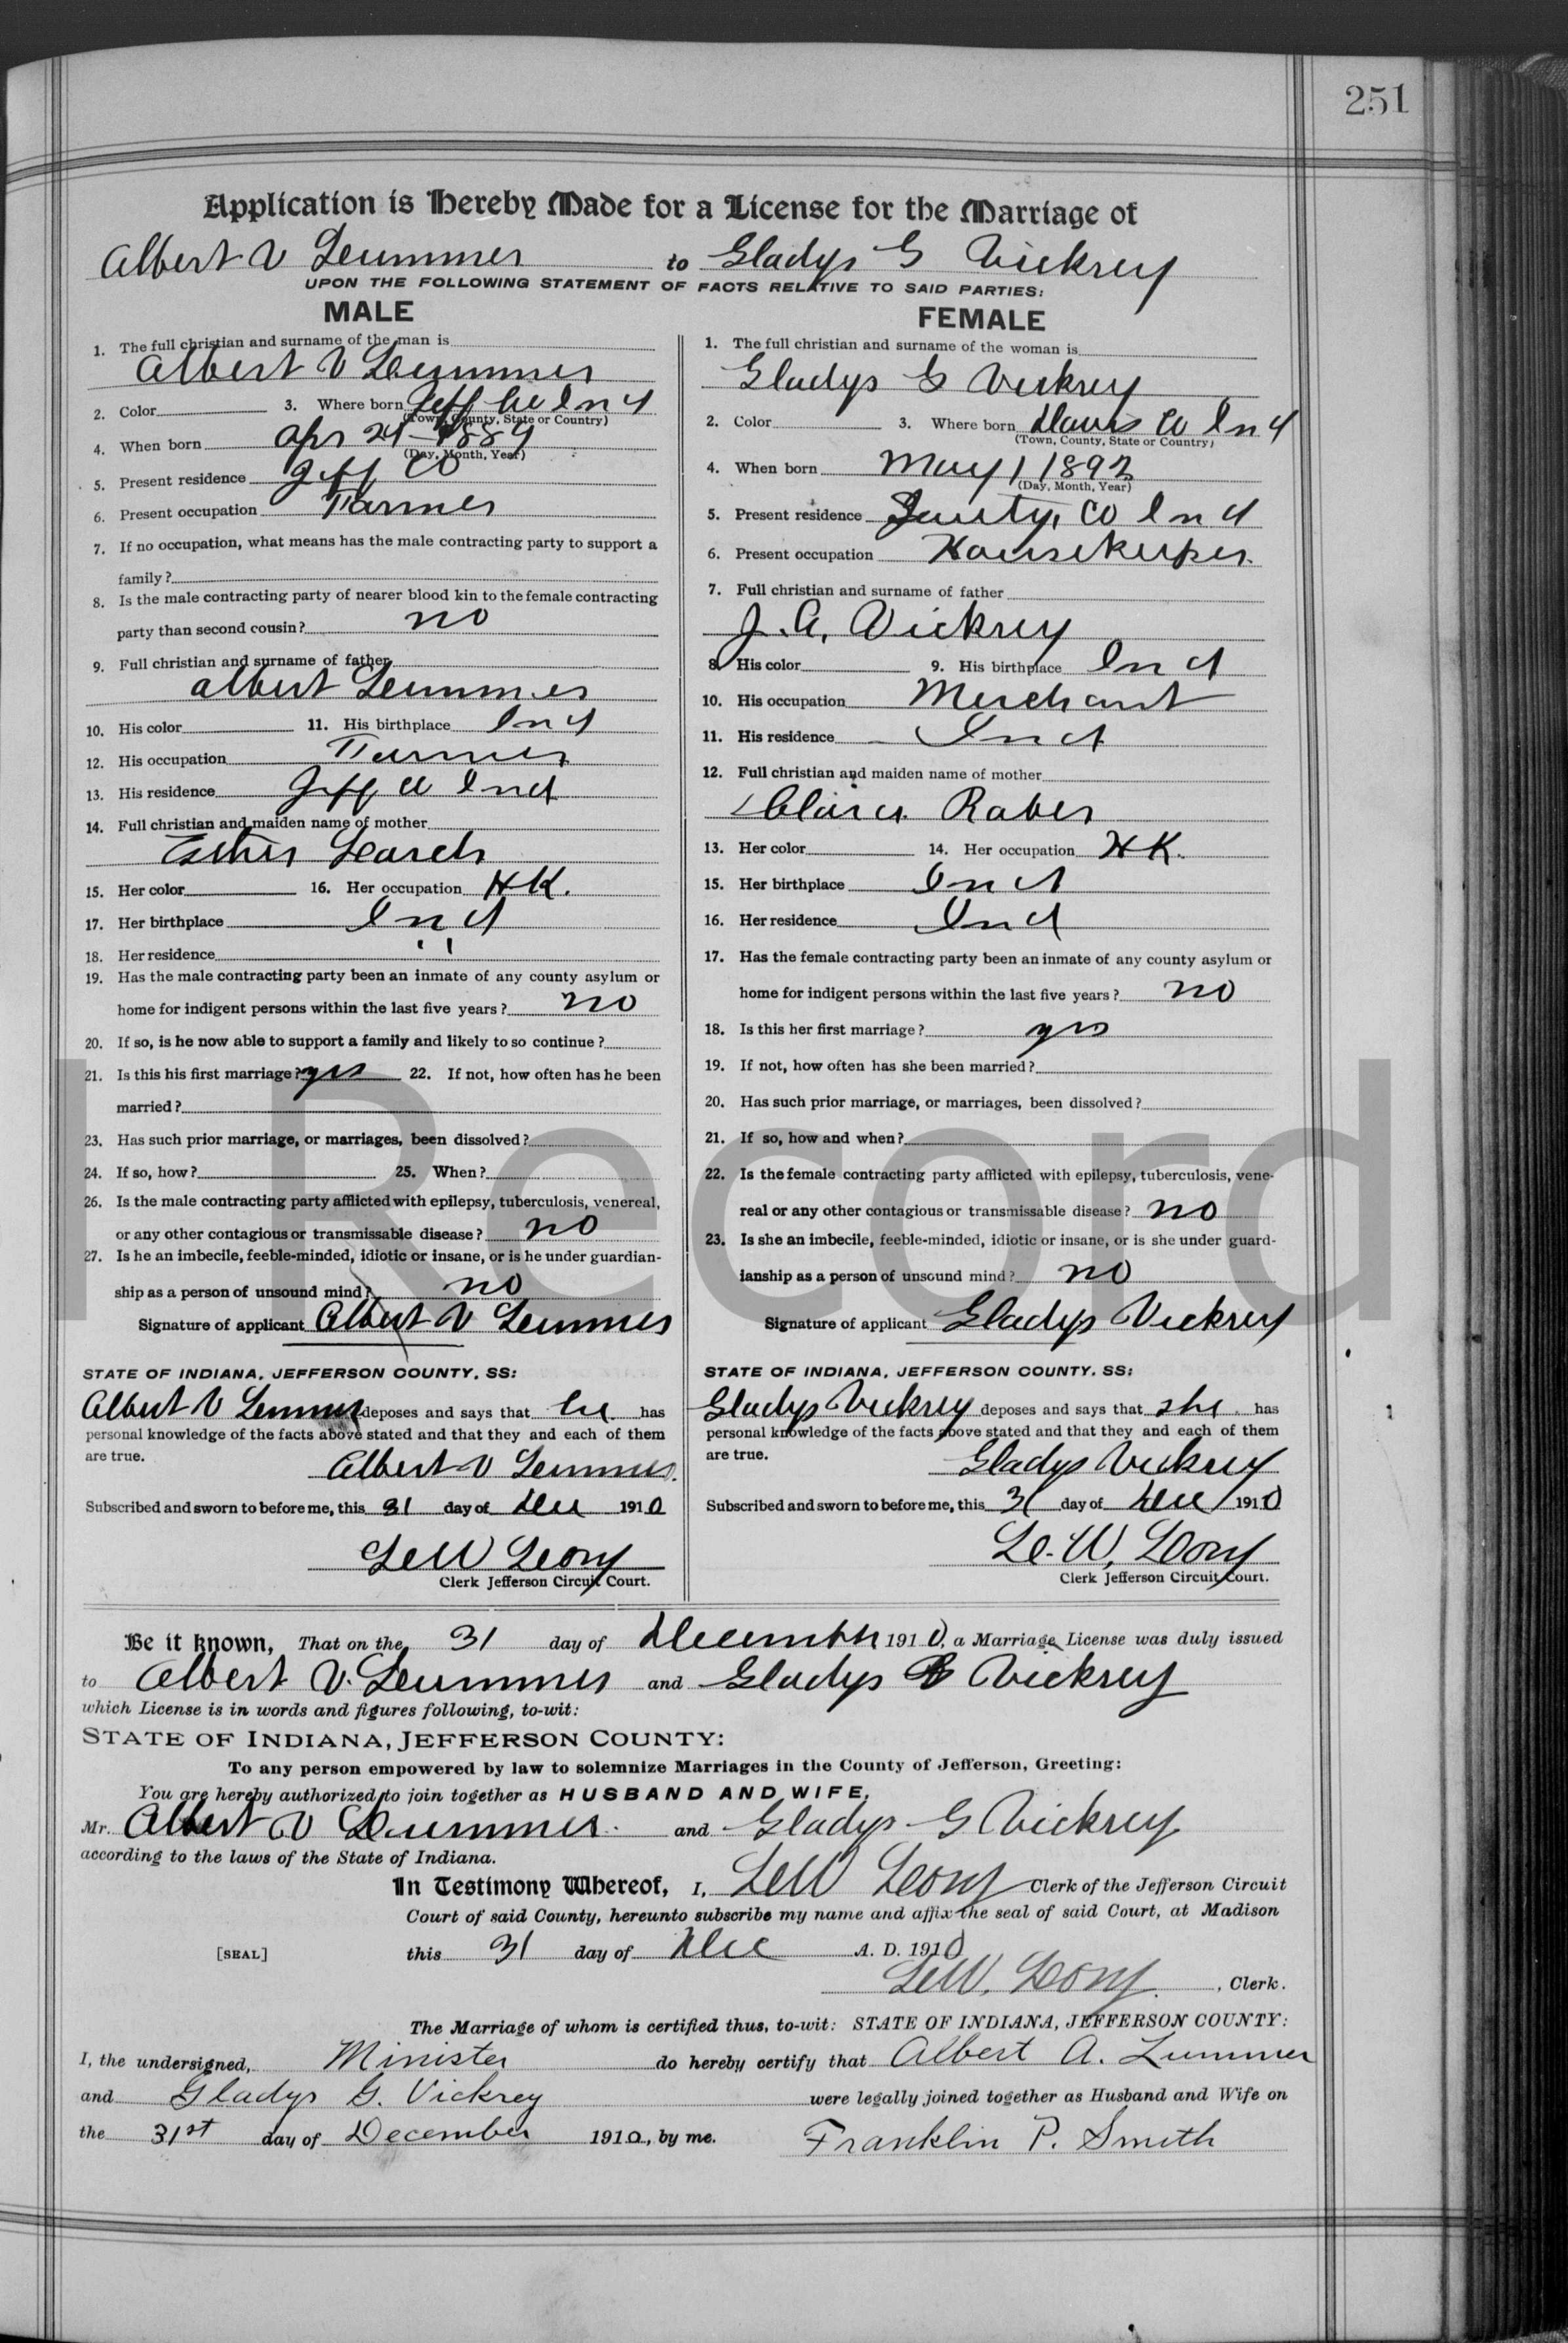 251
Application is Hereby Made for a License for the Marriage of
Albert V Lummer to Gladys G Vickrey
UPON THE FOLLOWING STATEMENT OF FACTS RELATIVE TO SAID PARTIES:
MALE
1. The full christian and surname of the man is
Albert V Lummer
2. Color 3. Where born Jeff Co Ind
(Town, County, State or Country)
4. When born Apr 24 - 1889
(Day, Month, Year)
5. Present residence Jeff Co
6. Present occupation Farmer
7. If no occupation, what means has the male contracting party to support a
family?
8. Is the male contracting party of nearer blood kin to the female contracting
party than second cousin? no
9. Full christian and surname of father
Albert Lummer
10. His color 11. His birthplace Ind
12. His occupation Farmer
13. His residence Jeff Co Ind
14. Full christian and maiden name of mother
Esther
15. Her color 16. Her occupation HK.
17. Her birthplace Ind
18. Her residence " "
19. Has the male contracting party been an inmate of any county asylum or
home for indigent persons within the last five years? no
20. If so, is he now able to support a family and likely to so continue?
21. Is this his first marriage? yes 22. If not, how often has he been
married?
23. Has such prior marriage, or marriages, been dissolved?
24. If so, how? 25. When?
26. Is the male contracting party afflicted with epilepsy, tuberculosis, venereal,
or any other contagious or transmissable disease? no
27. Is he an imbecile, feeble-minded, idiotic or insane, or is he under guardian-
ship as a person of unsound mind? no
Signature of applicant Albert V Lummer
STATE OF INDIANA, JEFFERSON COUNTY, SS:
Albert V Lummer deposes and says that he has
personal knowledge of the facts above stated and that they and each of them
are true.
Albert V Lummer.
Subscribed and sworn to before me, this 31 day of Dec 1910
Clerk Jefferson Circuit Court.
FEMALE
1. The full christian and surname of the woman is
Gladys G Vickrey
2. Color 3. Where born Daviss Co Ind
(Town, County, State or Country)
4. When born May 1 1892
(Day, Month, Year)
5. Present residence Co Ind
6. Present occupation Housekeeper.
7. Full christian and surname of father
J. A. Vickrey
8. His color 9. His birthplace Ind
10. His occupation Merchant
11. His residence Ind
12. Full christian and maiden name of mother
Raber
13. Her color 14. Her occupation HK.
15. Her birthplace Ind
16. Her residence Ind
17. Has the female contracting party been an inmate of any county asylum or
home for indigent persons within the last five years? no
18. Is this her first marriage? yes
19. If not, how often has she been married?
20. Has such prior marriage, or marriages, been dissolved?
21. If so, how and when?
22. Is the female contracting party afflicted with epilepsy, tuberculosis, vene-
real or any other contagious or transmissable disease? no
23. Is she an imbecile, feeble-minded, idiotic or insane, or is she under guard-
ianship as a person of unsound mind? no
Signature of applicant Gladys Vickrey
STATE OF INDIANA, JEFFERSON COUNTY, SS:
Gladys Vickrey deposes and says that she has
personal knowledge of the facts above stated and that they and each of them
are true.
Gladys Vickrey
Subscribed and sworn to before me, this 31 day of Dec 1910
Clerk Jefferson Circuit Court.
Be it known, That on the 31 day of December 1910, a Marriage License was duly issued
to Albert V. Lummer and Gladys G Vickrey
which License is in words and figures following, to-wit:
STATE OF INDIANA, JEFFERSON COUNTY:
To any person empowered by law to solemnize Marriages in the County of Jefferson, Greeting:
You are hereby authorized to join together as HUSBAND AND WIFE,
Mr. Albert V Lummer. and Gladys G Vickrey
according to the laws of the State of Indiana.
In Testimony Whereof, I, Clerk of the Jefferson Circuit
Court of said County, hereunto subscribe my name and affix the seal of said Court, at Madison
[SEAL] this 31 day of Dec A. D. 1910
, Clerk.
The Marriage of whom is certified thus, to-wit: STATE OF INDIANA, JEFFERSON COUNTY:
I, the undersigned, Minister do hereby certify that Albert A. Lummer
and Gladys G. Vickrey were legally joined together as Husband and Wife on
the 31st day of December 1910, by me. Franklin P. Smith
Record